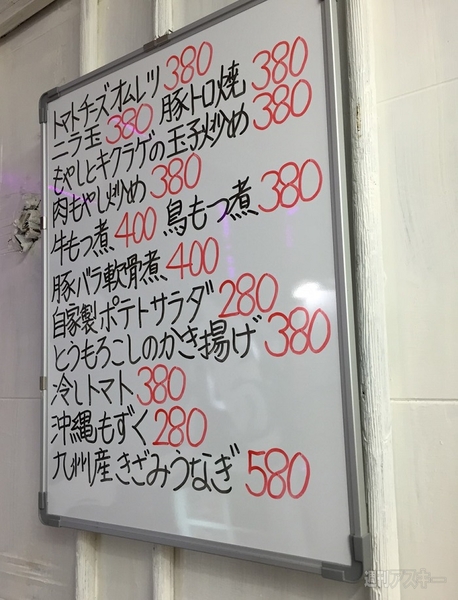 トマトチーズオムレツ 380
ニラ玉 380 豚トロ焼 380
もやしとキクラゲの玉子炒め 380
肉もやし炒め 380
牛もつ煮 400 鳥もつ煮 380
豚バラ軟骨煮 400
自家製ポテトサラダ 280
とうもろこしのかき揚げ 380
冷しトマト 380
沖縄もずく 280
九州産きざみうなぎ 580
週刊アスキー